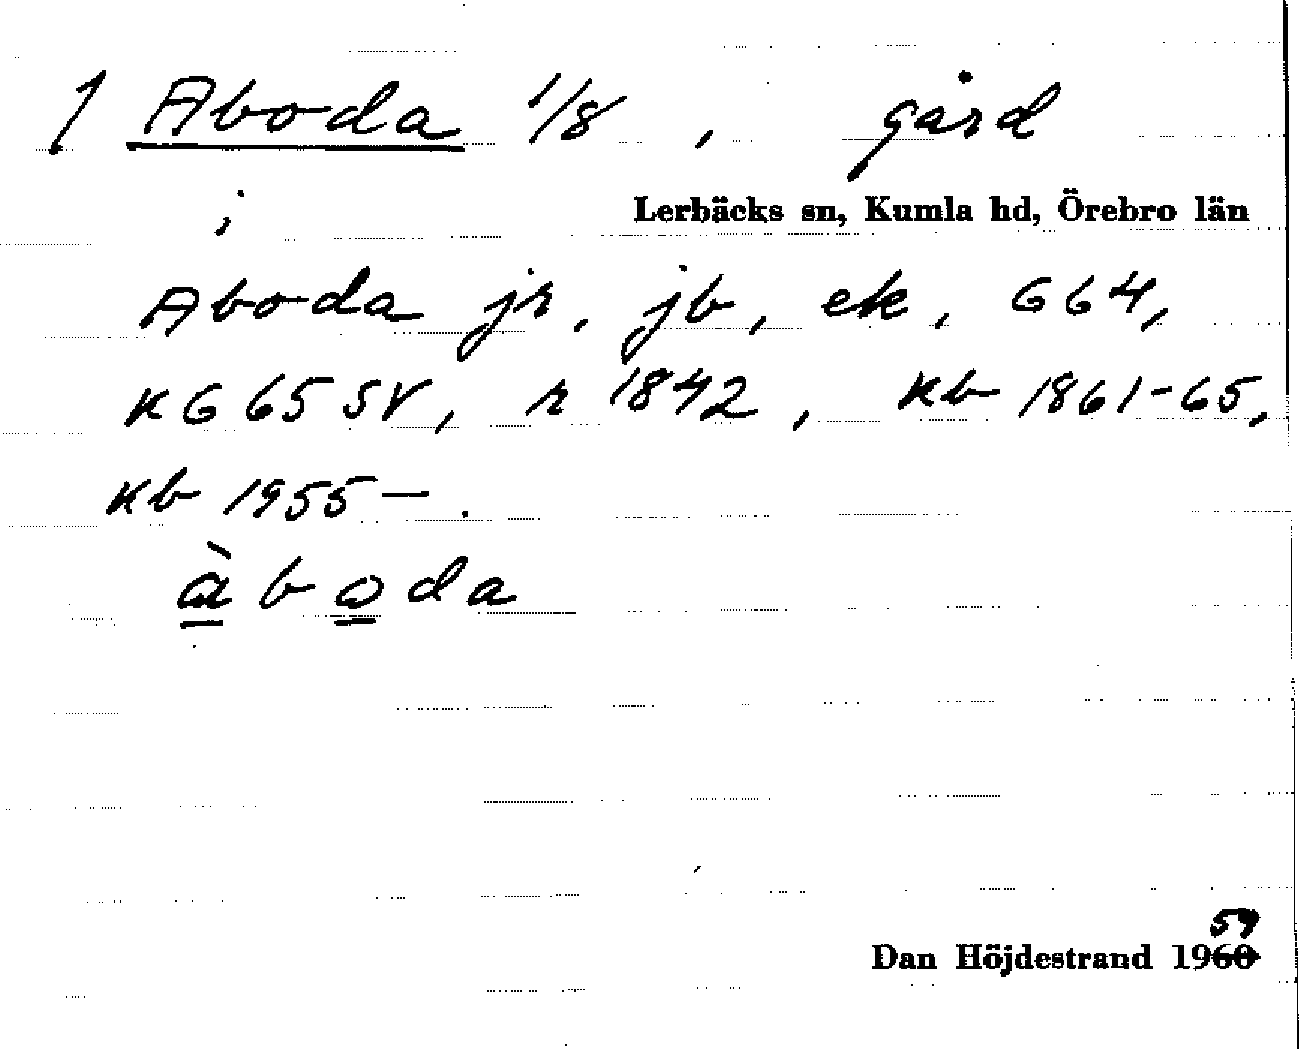 1 Aboda 1/8, gård
i
Lerbäcks sn, Kumla hd, Örebro län
Aboda jr, jb, ek, G64,
KG 65 SV, r 1842, kb 1861-65,
kb 1955-.
àboda
Dan Höjdestrand 1960
59